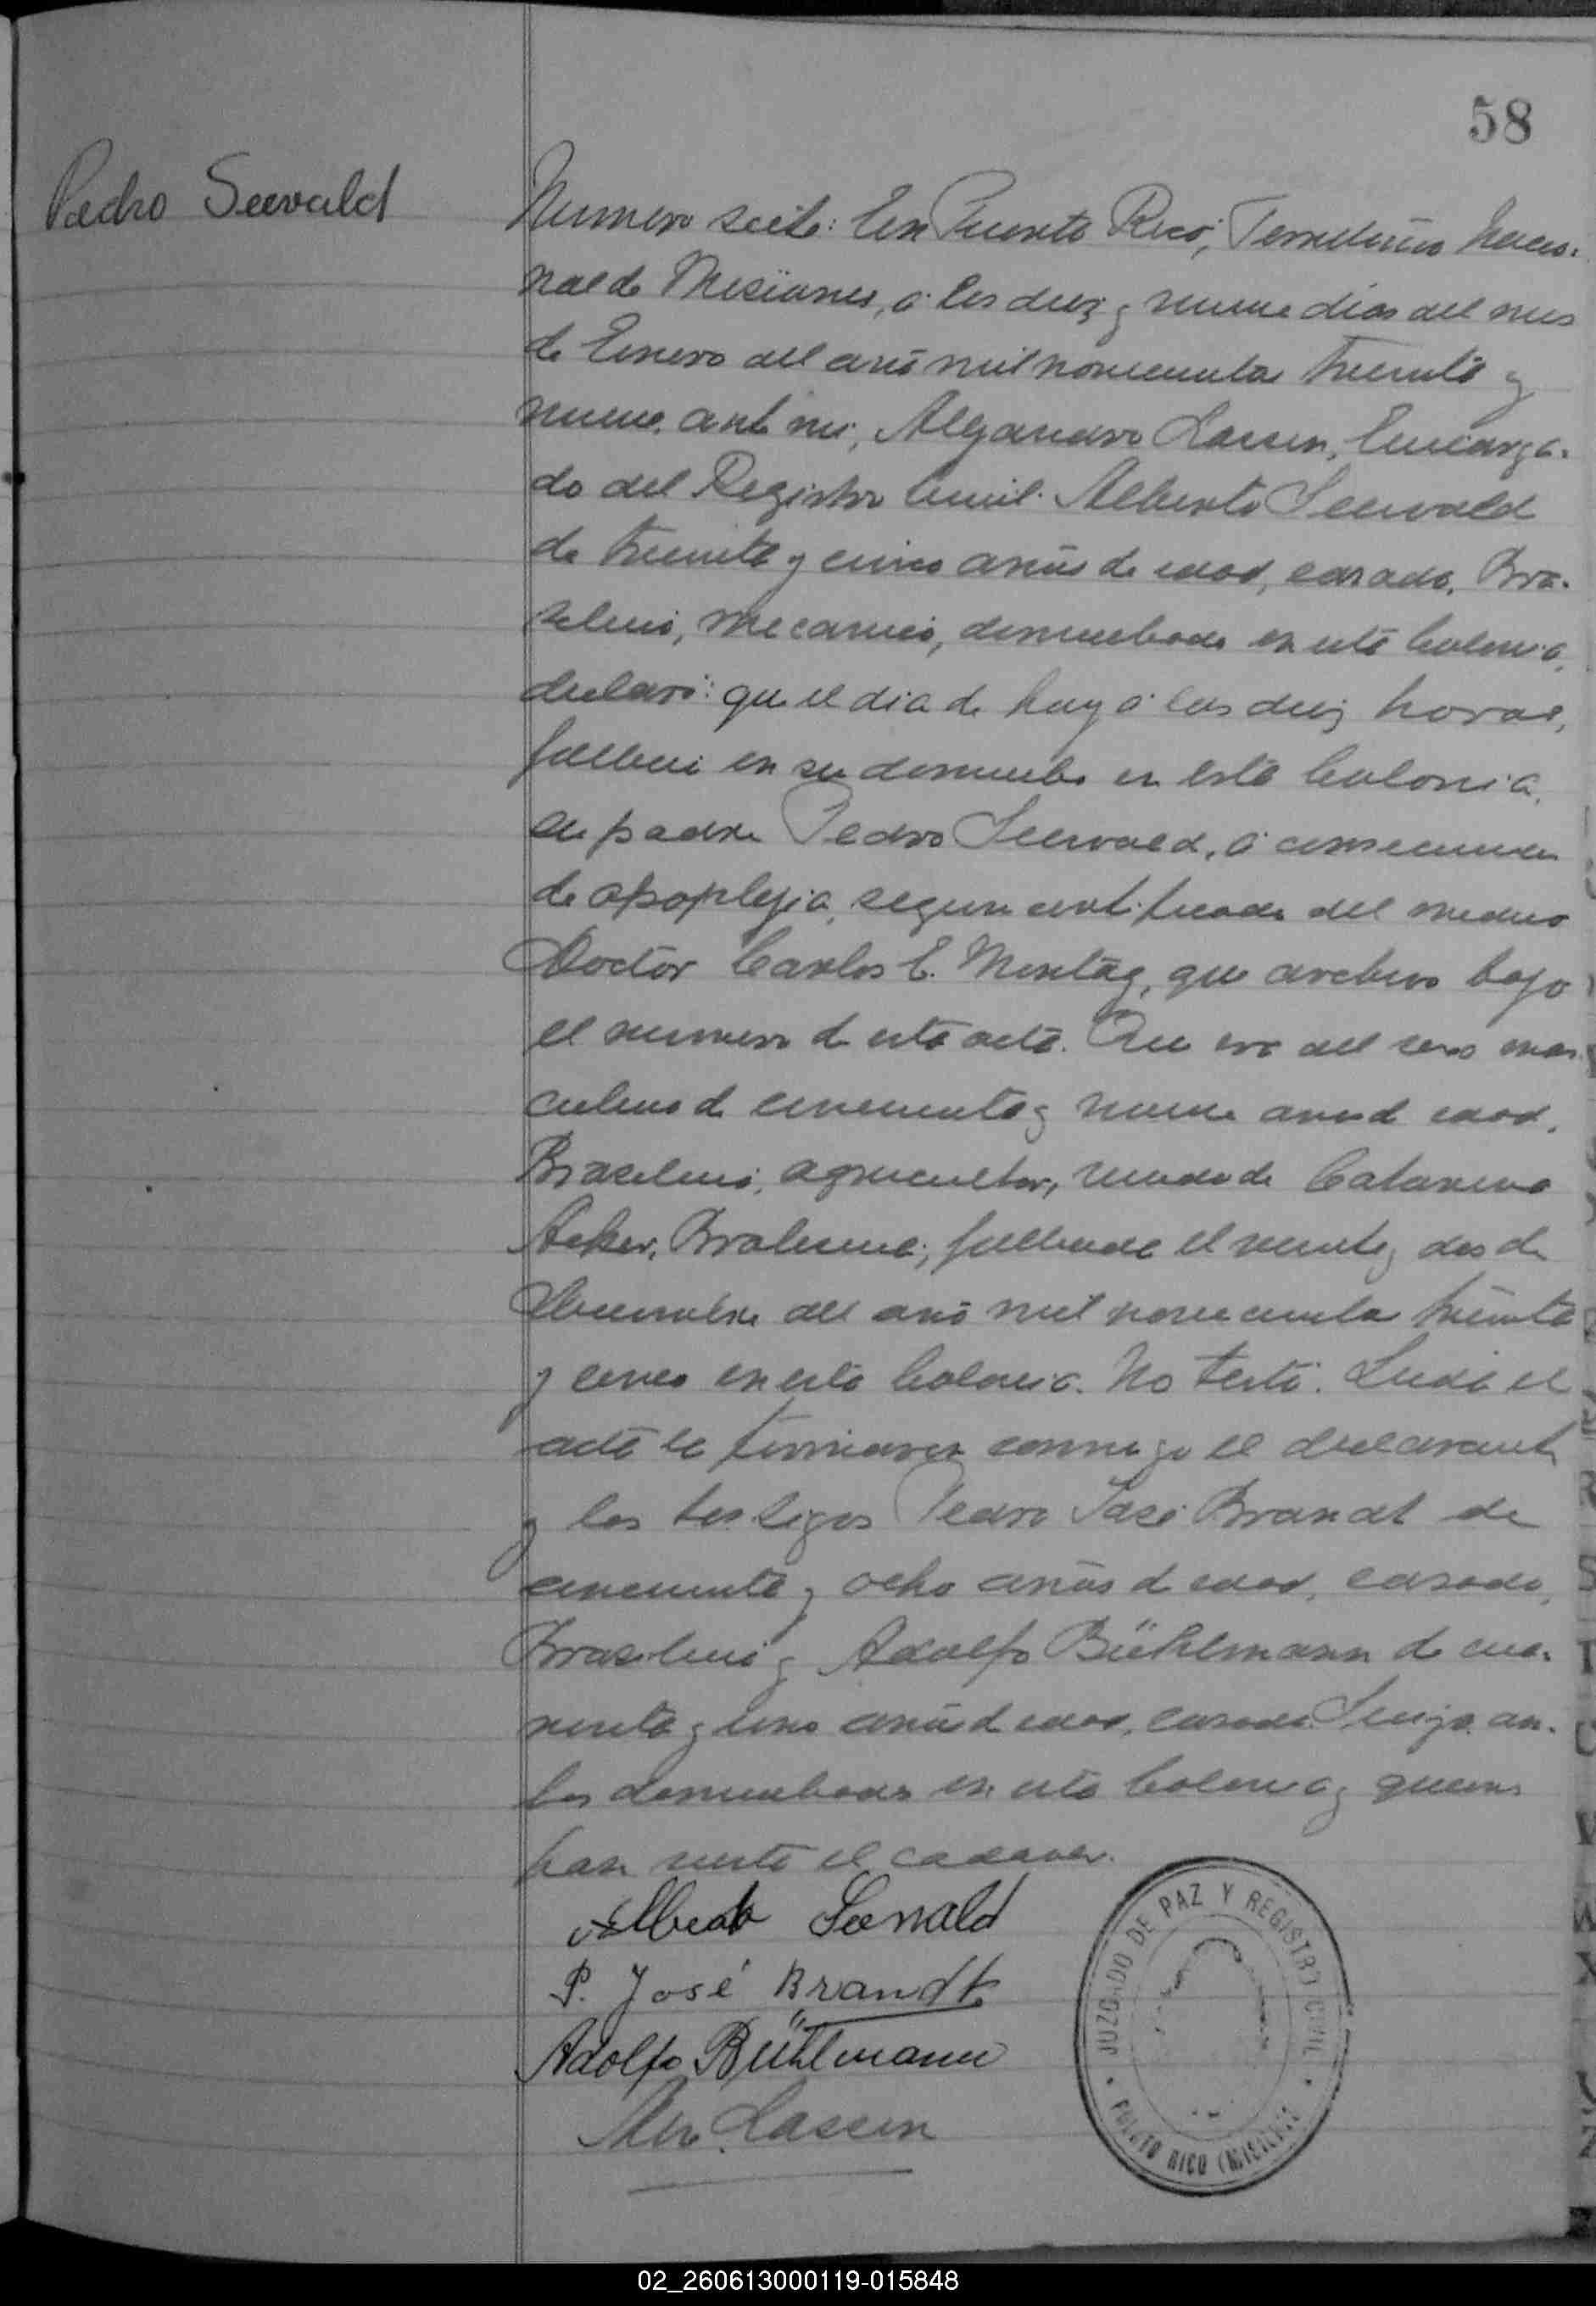 58
Pedro Seewald
Numero siete: En Puerto Rico, Territorio Nacio-
nal de Misiones, a los diez y nueve dias del mes
de Enero del año mil novecientos treinta y
nueve, ante mi, Alejandro Lassen, Encarga-
do del Registro Civil. Alberto Seewald
de treinta y cinco años de edad, casado, Bra-
sileño, mecanico, domiciliado en esta Colonia,
declaró: que el dia de hoy a las diez horas,
falleció en su domicilio en esta Colonia,
su padre Pedro Seewald, a consecuencia
de apoplejia, segun certificado del medico
Doctor Carlos E. Montag, que archivo bajo
el numero de esta acta. Que era del sexo mas
culino de cincuenta y nueve años de edad,
Brasileño, agricultor, viudo de Catarina
Acker, Brasileña, fallecida el veinte y dos de
Diciembre del año mil novecientos treinta
y cinco en esta Colonia. No testó. Leida el
acta la firmaron conmigo el declarante
y los testigos Pedro José Brandt de
cincuenta y ocho años de edad, casado,
Brasileño y Adolfo Bühlmann de cua-
renta y uno años de edad, casado, Suizo, am-
bos domiciliados en esta Colonia y quienes
han visto el cadaver.
Alberto Seewald
P. José Brandt
Adolfo Bühlmann
Lassen
JUZGADO DE PAZ Y REGISTRO CIVIL
PUERTO RICO (MISIONES)
02_260613000119-015848